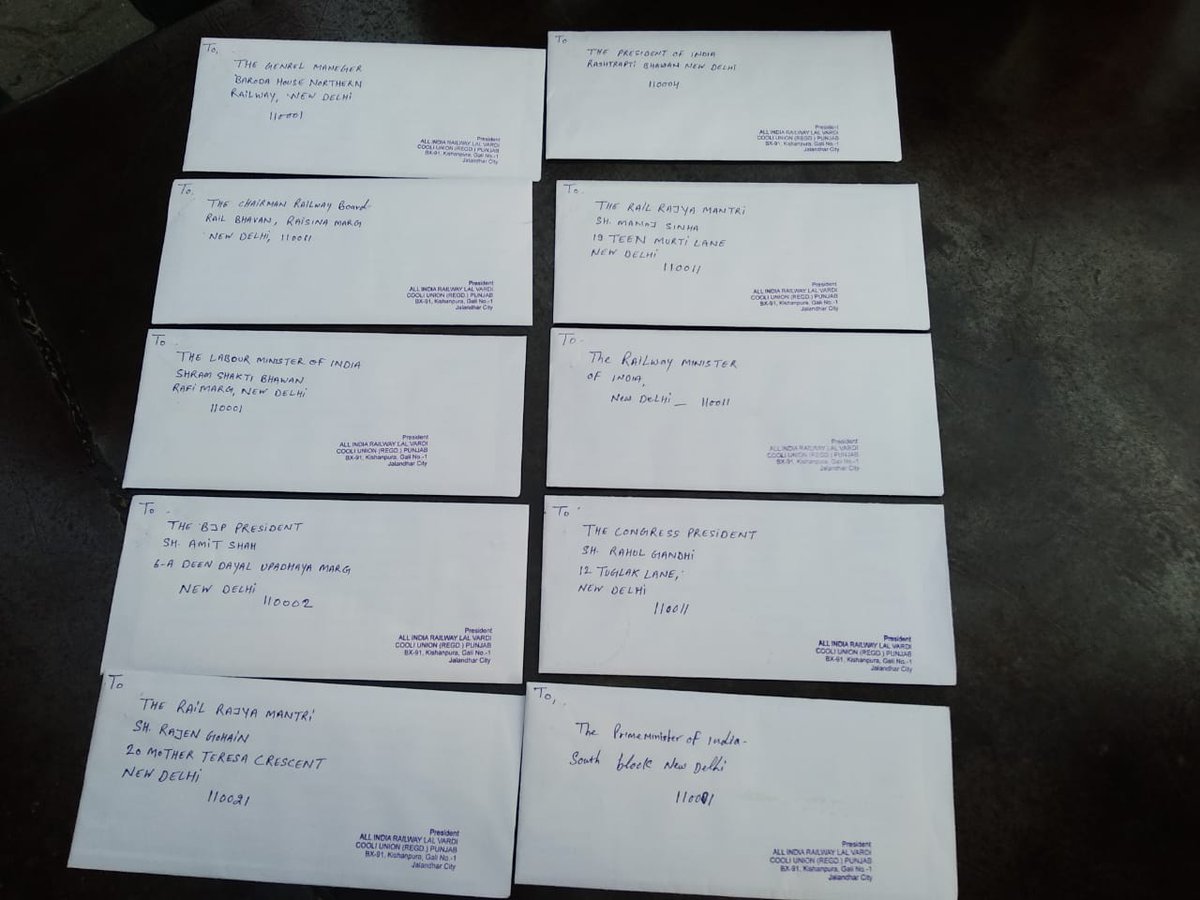 To,
THE GENREL MANEGER
BARODA HOUSE NORTHERN
RAILWAY, NEW DELHI
110001
President
ALL INDIA RAILWAY LAL VARDI
COOLI UNION (REGD.) PUNJAB
BX-91, Kishanpura, Gali No.-1
Jalandhar City
To
THE PRESIDENT OF INDIA
RASHTRAPTI BHAWAN NEW DELHI
110004
President
ALL INDIA RAILWAY LAL VARDI
COOLI UNION (REGD.) PUNJAB
BX-91, Kishanpura, Gali No.-1
Jalandhar City
To,
THE CHAIRMAN RAILWAY Board
RAIL BHAVAN, RAISINA MARG
NEW DELHI, 110011
President
ALL INDIA RAILWAY LAL VARDI
COOLI UNION (REGD.) PUNJAB
BX-91, Kishanpura, Gali No.-1
Jalandhar City
To.
THE RAIL RAJYA MANTRI
SH. MANAJ SINHA
19 TEEN MURTI LANE
NEW DELHI
110011
President
ALL INDIA RAILWAY LAL VARDI
COOLI UNION (REGD.) PUNJAB
BX-91, Kishanpura, Gali No.-1
Jalandhar City
To
THE LABOUR MINISTER OF INDIA
SHRAM SHAKTI BHAWAN
RAFI MARG, NEW DELHI
110001
President
ALL INDIA RAILWAY LAL VARDI
COOLI UNION (REGD.) PUNJAB
BX-91, Kishanpura, Gali No.-1
Jalandhar City
To
The RAILWAY MINISTER
OF INDIA,
NEW DELHI _ 110011
President
ALL INDIA RAILWAY LAL VARDI
COOLI UNION (REGD.) PUNJAB
BX-91, Kishanpura, Gali No.-1
Jalandhar City
To
THE BJP PRESIDENT
SH. AMIT SHAH
6-A DEEN DAYAL UPADHAYA MARG
NEW DELHI
110002
President
ALL INDIA RAILWAY LAL VARDI
COOLI UNION (REGD.) PUNJAB
BX-91, Kishanpura, Gali No.-1
Jalandhar City
To
THE CONGRESS PRESIDENT
SH. RAHUL GANDHI
12 TUGLAK LANE,
NEW DELHI
110011
President
ALL INDIA RAILWAY LAL VARDI
COOLI UNION (REGD.) PUNJAB
BX-91, Kishanpura, Gali No.-1
Jalandhar City
To
THE RAIL RAJYA MANTRI
SH. RAJEN GOHAIN
20 MOTHER TERESA CRESCENT
NEW DELHI
110021
President
ALL INDIA RAILWAY LAL VARDI
COOLI UNION (REGD.) PUNJAB
BX-91, Kishanpura, Gali No.-1
Jalandhar City
To,
The Primeminister of India-
South block New Delhi
President
ALL INDIA RAILWAY LAL VARDI
COOLI UNION (REGD.) PUNJAB
BX-91, Kishanpura, Gali No.-1
Jalandhar City